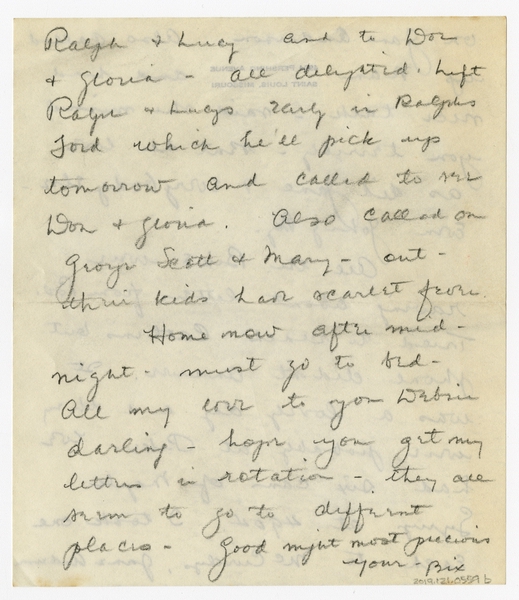 Ralph & Lucy and to Don
& Gloria - all delighted. Left
Ralph & Lucys early in Ralphs
Ford which he'll pick up
tomorrow and called to see
Don & Gloria. Also called on
George Scott & Mary - out -
their kids have scarlet fever.
Home now after mid-
night - must go to bed -
All my love to you Debrie
darling - hope you get my
letters in rotation - they all
seem to go to different
places - Good night most precious
your - Bix
2019.121.0559 b